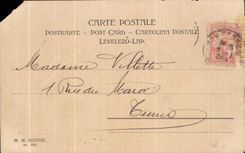 CARTE POSTALE
POSTKARTE – POST CARD – CARTOLINA POSTALE
LEVELEZŐ-LAP.
Madame Villette
1 Rue du Maroc
Tunis
M. M. VIENNE.